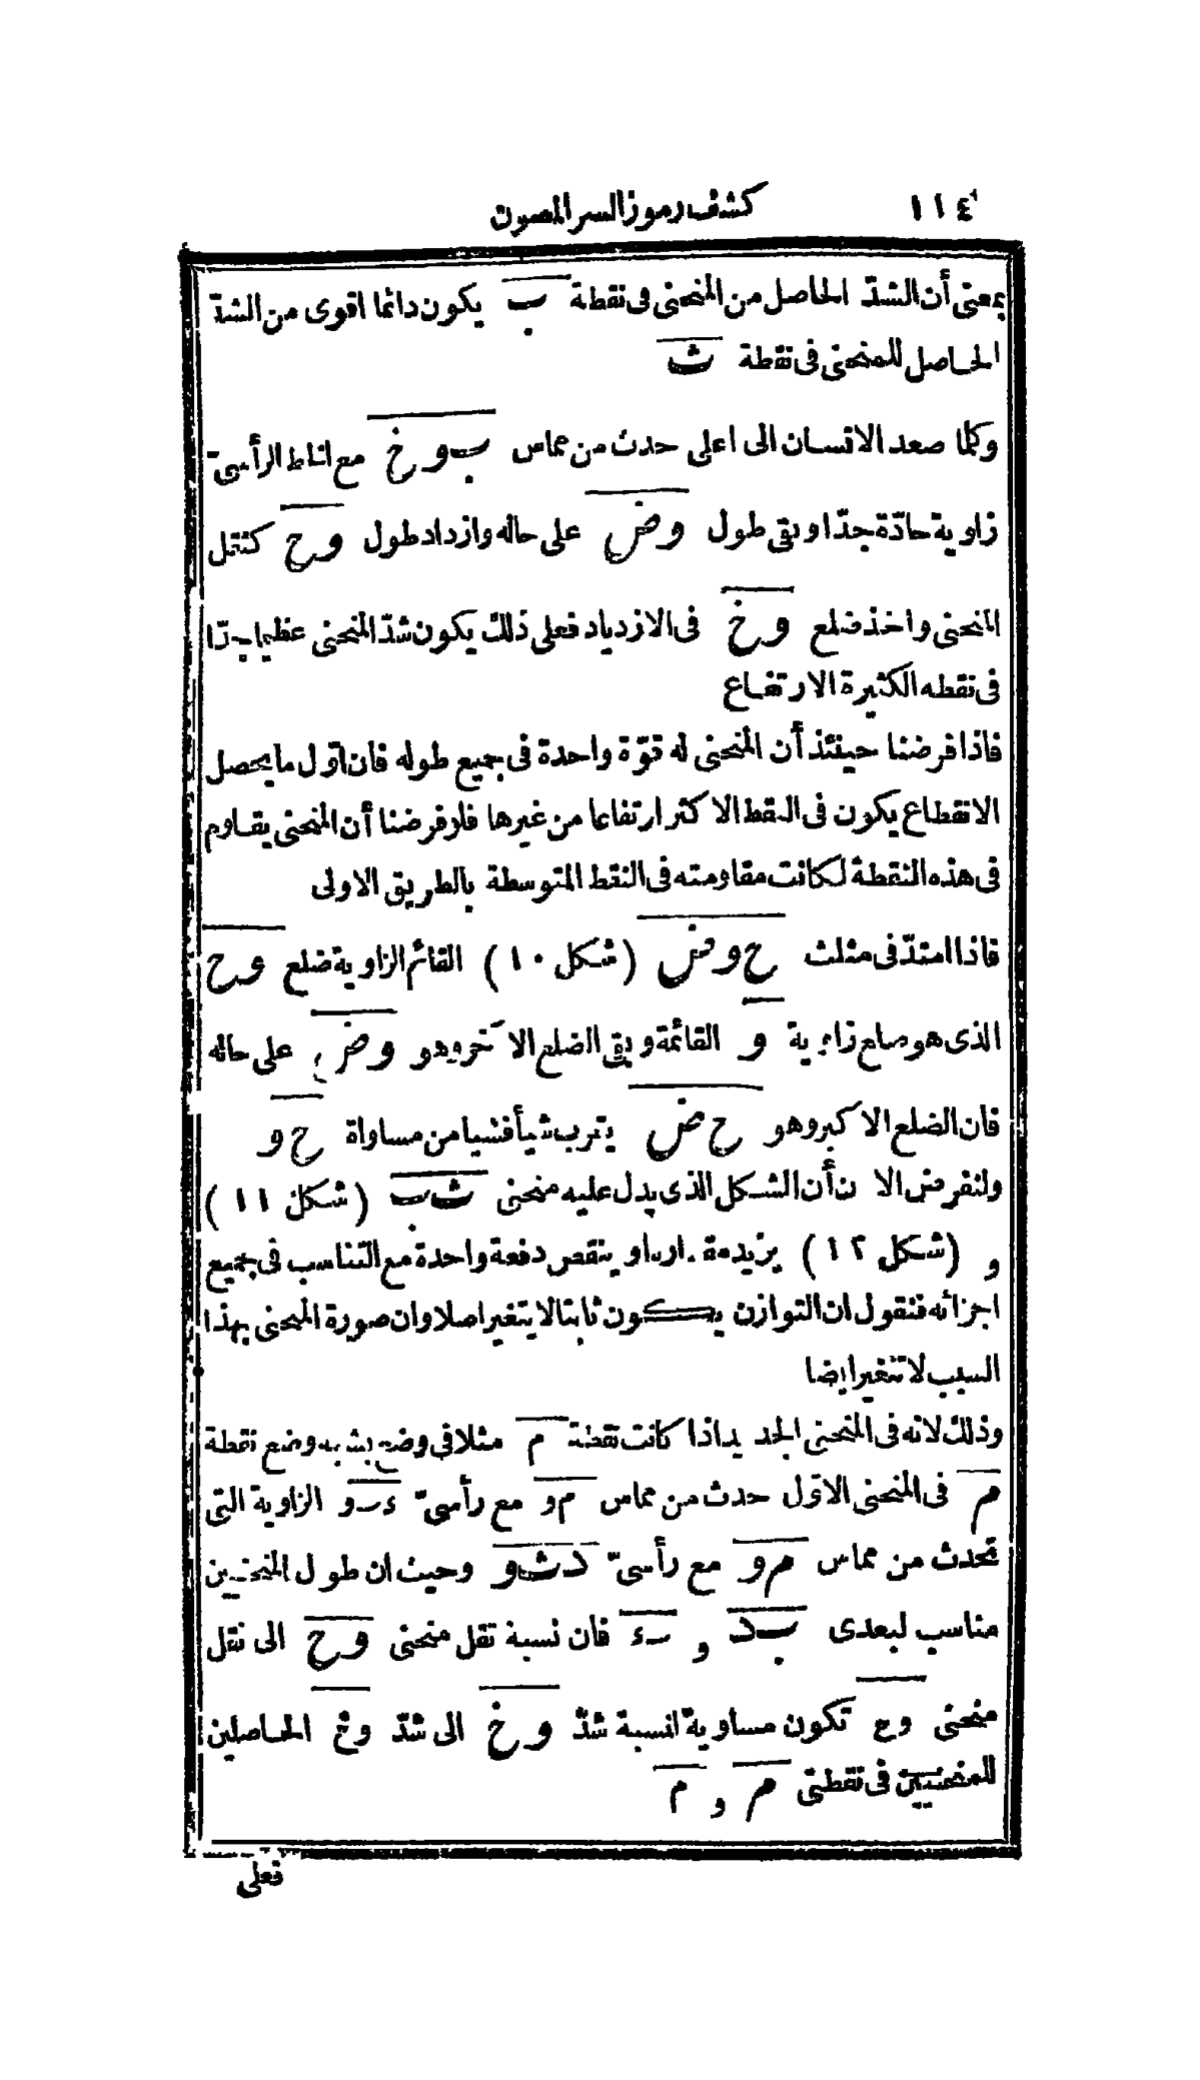 ١١٤ كشف رموز السر المصون
بمعنى أن الشدّ الحاصل من المنحنى فى نقطة ب يكون دائما اقوى من الشدّ
الحاصل للمنحنى فى نقطة ث
وكلما صعد الانسان الى اعلى حدث من مماس ب و خ مع الخط الرأسىّ
زاوية حادّة جدّا وبقى طول و ض على حاله وازداد طول و ح كثقل
المنحنى واخذ ضلع و خ فى الازدياد فعلى ذلك يكون شدّ المنحنى عظيما جدّا
فى نقطه الكثيرة الارتفاع
فاذا فرضنا حينئذ أن المنحنى له قوّة واحدة فى جميع طوله فان اوّل ما يحصل
الانقطاع يكون فى النقط الاكثر ارتفاعا من غيرها فلو فرضنا أن المنحنى يقاوم
فى هذه النقطة لكانت مقاومته فى النقط المتوسطة بالطريق الاولى
فاذا امتدّ فى مثلث ح و ض (شكل ١٠) القائم الزاوية ضلع و ح
الذى هو ضلع زاوية و القائمة وبقى الضلع الآخر وهو و ض على حاله
فان الضلع الاكبر وهو ح ض يقرب شيأ فشيا من مساواة ح و
ولنفرض الآن أن الشكل الذى يدل عليه منحنى ث ب (شكل ١١)
و (شكل ١٢) يزيد مقداره او ينقص دفعة واحدة مع التناسب فى جميع
اجزائه فنقول ان التوازن يكون ثابتا لا يتغير اصلا وان صورة المنحنى بهذا
السبب لا تتغير ايضا
وذلك لانه فى المنحنى الجديد اذا كانت نقطة م مثلا فى وضع يشبه وضع نقطة
م فى المنحنى الاوّل حدث من مماس م و مع رأسىّ ء ر و الزاوية التى
تحدث من مماس م و مع رأسىّ د ث و وحيث ان طول المنحنيين
مناسب لبعدى ب د و ر ء فان نسبة ثقل منحنى و ح الى ثقل
منحنى و ع تكون مساوية لنسبة شدّ و خ الى شدّ و غ الحاصلين
للمنحنيين فى نقطتى م و م
فعلى